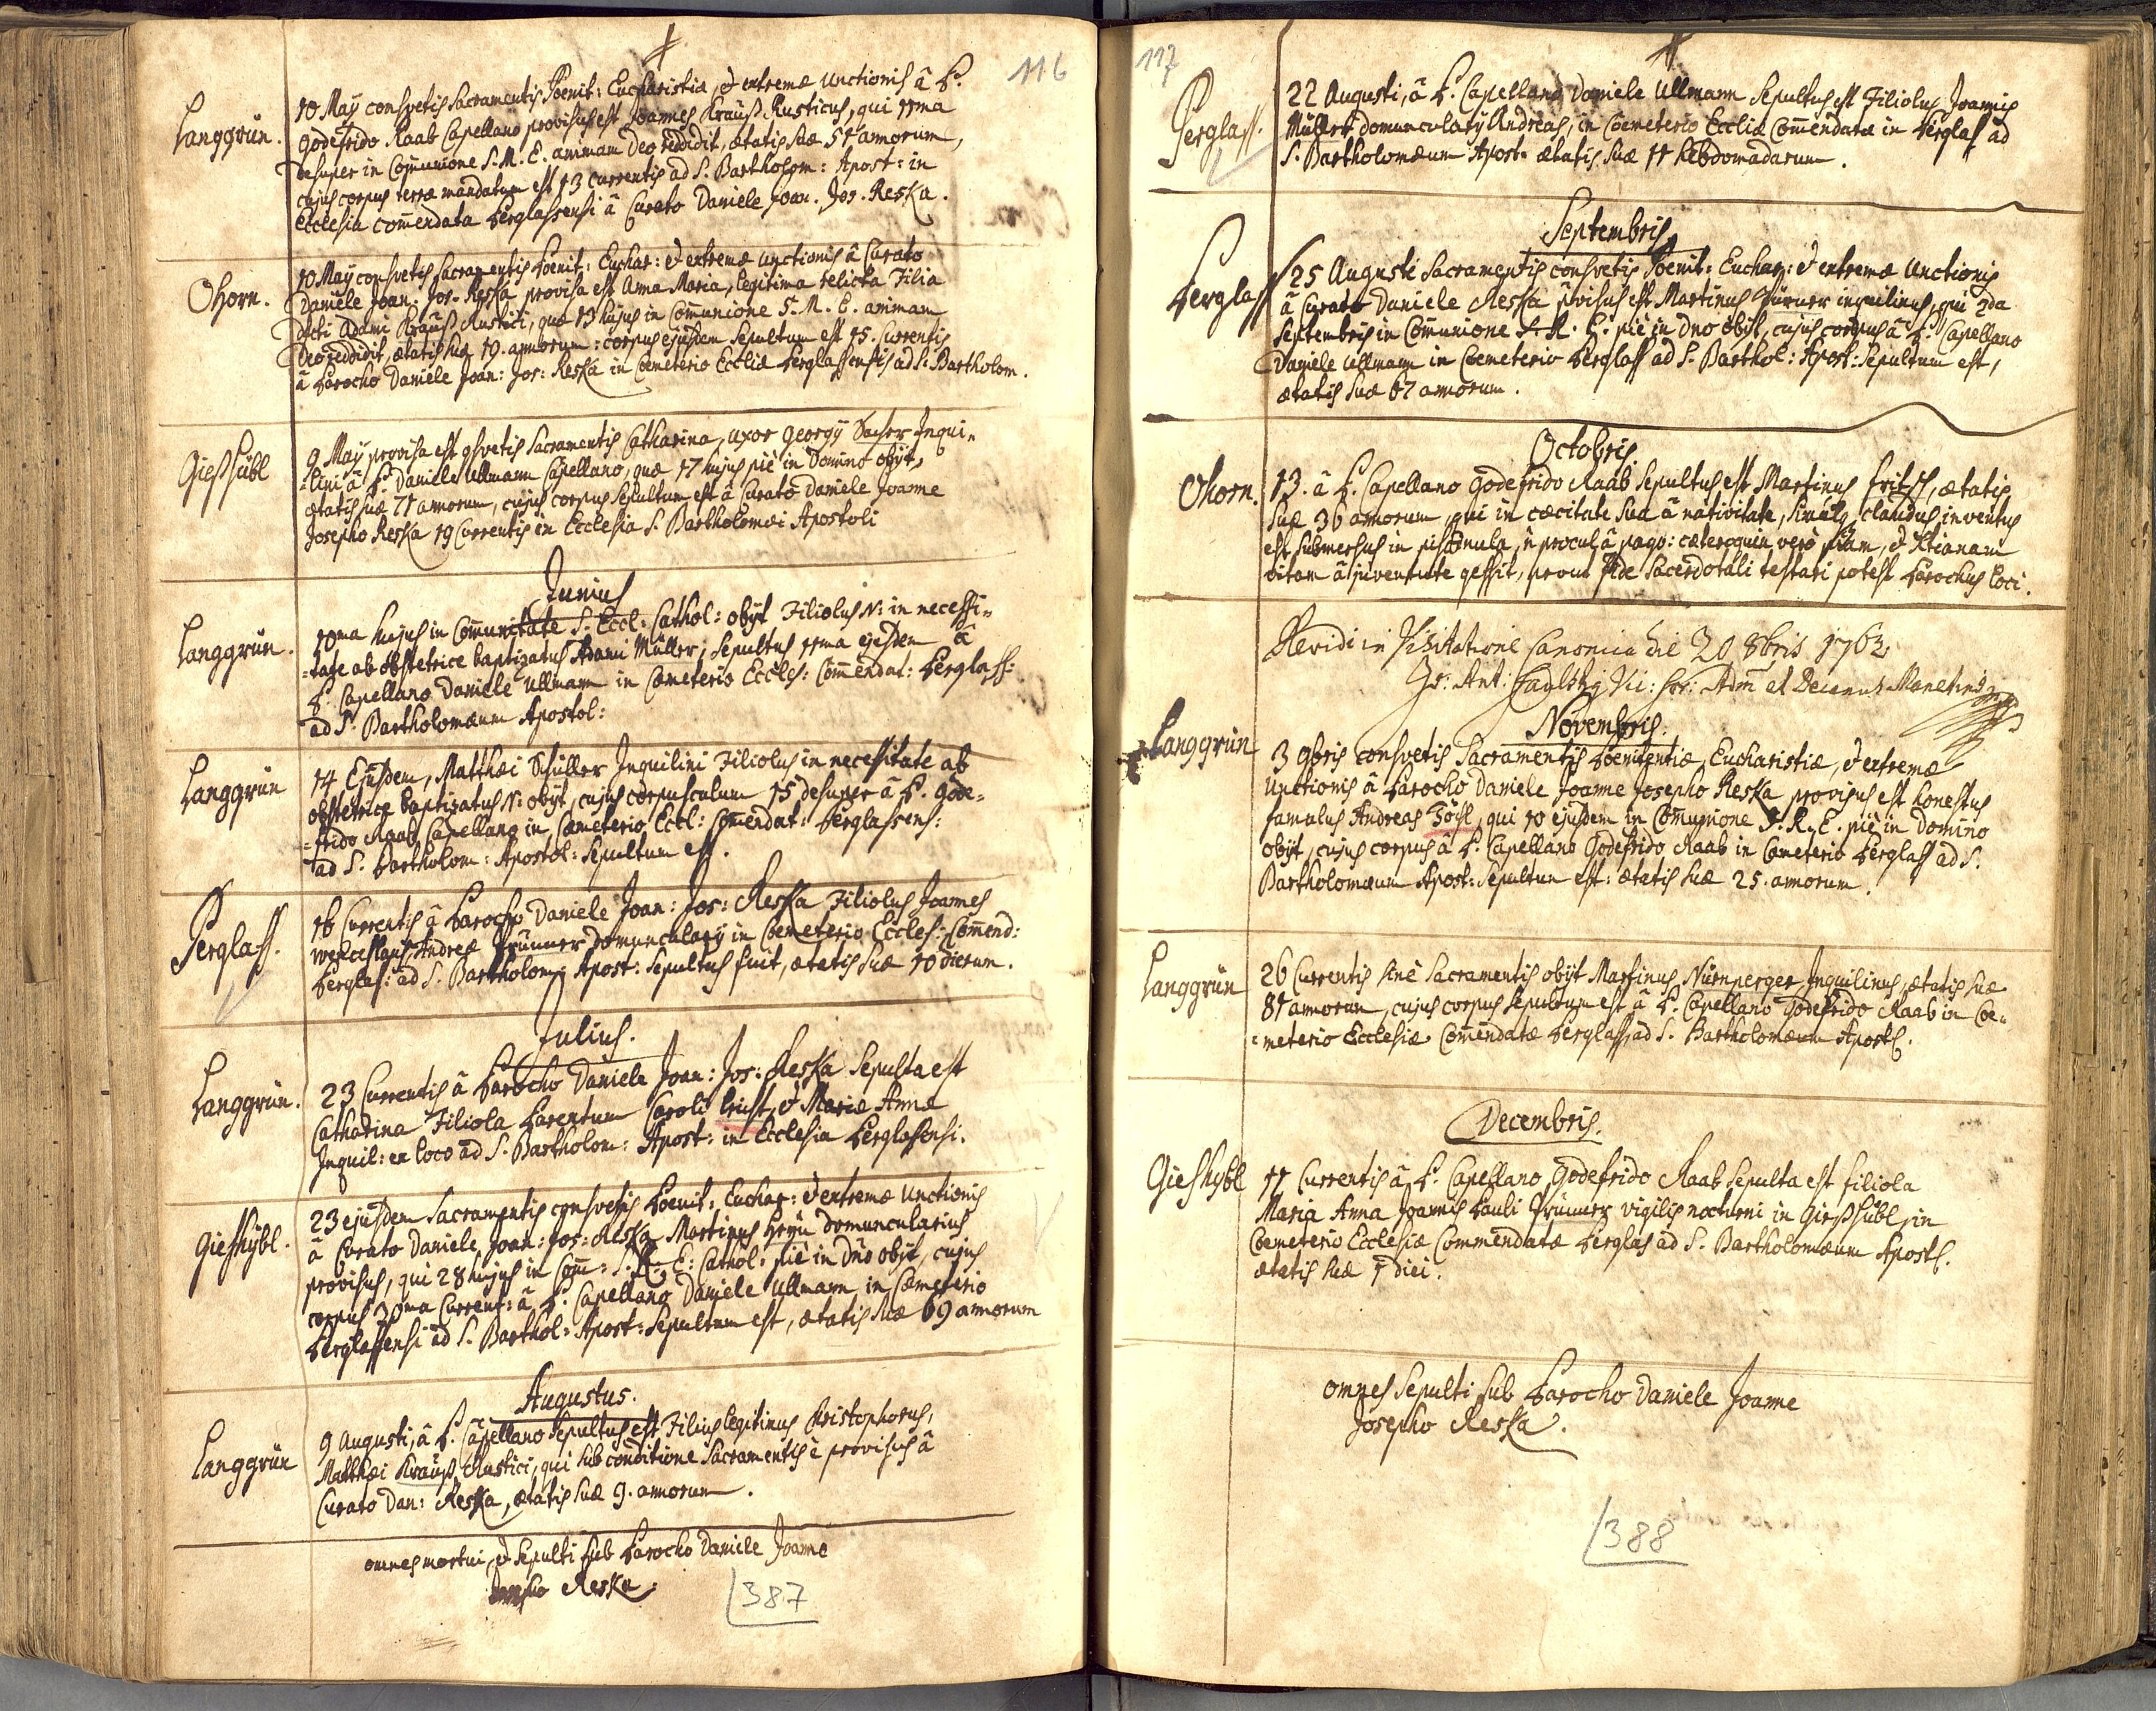 116
Langgrün.
10 Maÿ consvetis Sacramentis Poenit: Eucharistiæ, & extremæ Unctionis â P.
Godefrido Raab Capellano provisus est Joannes Krauß Rusticus, qui 11ma
desuper in Com̄unione S. M. E. animam Deo reddidit, ætatis suæ 51 annorum,
cujus corpus terræ mandatum est 13 currentis ad S. Bartholom: Apost: in
Ecclesia com̄endata Perglassensi â Curato Daniele Joan. Jos. Reska.
Ohorn.
10 Maÿ consvetis Sacramentis Poenit: Euchar: & extremæ Unctionis â Curato
Daniele Joan: Jos: Reska provisa est Anna Maria, legitima relicta Filia
dicti Adami Krauß Rustici, quæ 13 hujus in Com̄unione S. M. E. animam
Deo reddidit, ætatis suæ 19. annorum: corpus ejusdem Sepultum est 15. Currentis
â Parocho Daniele Joan: Jos: Reska in Coemeterio Eccliæ Perglassensis ad S. Bartholom.
Gießhübl
9 Maÿ provisa est qsvetis Sacramentis Catharina, uxor Georgÿ Sacher Inqui„
„lini â P. Daniele Ullmann Capellano, quæ 17 hujus piè in Domino obÿt,
ætatis suæ 71 annorum, cujus corpus Sepultum est â Curato Daniele Joanne
Josepho Reska 19 Currentis in Ecclesia S. Bartholomæi Apostoli
Junius
Langgrün.
10ma hujus in Com̄unitate S. Eccl: Cathol: obÿt Filiolus N: in necessi„
„tate ab obstetrice baptizatus Adami Müller; Sepultus 11ma ejusdem â
P. Capellano Daniele Ullmann in Cæmeterio Eccles: Com̄endat: Perglass:
ad S. Bartholomæum Apostol:
Langgrün
14 Ejusdem, Matthæi Schüller Inquilini Filiolus in necessitate ab
obstetrice baptizatus N: obÿt, cujus corpusculum 15 desuper â P. Gode„
„frido Raab Capellano in Cæmeterio Eccl: Com̄endat: Perglassens:
ad S. Bartholom: Apostol: Sepultum est.
Perglass.
16 Currentis â Parocho Daniele Joan: Jos: Reska Filiolus Joannes
Wenceslaus Andreæ Brünner domuncularÿ in Coemeterio Eccles: Com̄end:
Perglas: ad S. Bartholom: Apost: Sepultus fuit, ætatis suæ 10 dierum.
Julius.
Langgrün.
23 Currentis â Parocho Daniele Joan: Jos: Reska Sepulta est
Catharina Filiola Parentum Caroli & Mariæ Annæ
Inquil: ex loco ad S. Bartholom: Apost: in Ecclesia Perglassensi.
Gießhÿbl.
23 ejusdem Sacramentis consvetis Poenit: Euchar: & extremæ Unctionis
â Curato Daniele Joan: Jos: Reska Martinus domuncularius
provisus, qui 28 hujus in Com̄: S. R. E: Cathol: piè in Dn̄o obÿt, cujus
corpus 30ma Current: â P. Capellano Daniele Ullmann in Cæmeterio
Perglassensi ad S. Barthol: Apost: Sepultum est, ætatis suæ 69 annorum
Augustus.
Langgrün
9 Augusti, â P. Capellano Sepultus est Filius legitimus Christophorus,
Matthæi Krauß Rustici, qui sub conditione Sacramentis è provisus â
Curato Dan: Reska, ætatis suæ 9. annorum.
omnes mortui, & Sepulti sub Parocho Daniele Joanne
Josepho Reska.
387
117
Perglass.
22 Augusti, â P. Capellano Daniele Ullmann Sepultus est Filiolus Joannis
Müller domuncularÿ Andreas, in Coemeterio Eccliæ Com̄endatæ in Perglas ad
S. Bartholomæum Apost. ætatis suæ 11 hebdomadarum.
Septembris
Perglass
25 Augusti Sacramentis consvetis Poenit: Euchar: & extremæ Unctionis
â Curato Daniele Reska p̄visus est Martinus inquilinus, qui 2da
Septembris in Com̄unione S. R. E. piè in Dno obÿt, cujus corpus â P. Capellano
Daniele Ullmann in Coemeterio Perglass ad S. Barthol: Apost: Sepultum est,
ætatis suæ 67 annorum.
Octobris
Ohorn.
13. â P. Capellano Godefrido Raab Sepultus est Martinus Fritsch, ætatis
suæ 36 annorum, qui in cæcitate sua â nativitate, simulq claudus inventus
est submersus in piscinula, n̄ procul â pago: cæteroquin verò piam, & Xtianam
vitam â juventute gessit, prout fide Sacerdotali testari potest Parochus loci.
Revidi in Visitatione Canonica die 20 8bris 1762
Vic: For: Adm et Decanus
Novembris.
Langgrün
3 9bris consvetis Sacramentis Poenitentiæ, Eucharistiæ, & extremæ
Unctionis â Parocho Daniele Joanne Josepho Reska provisus est honestus
famulus Andreas, qui 10 ejusdem in Com̄unione S. R. E. piè in Domino
obÿt, cujus corpus â P. Capellano Godefrido Raab in Cæmeterio Perglass ad S.
Bartholomæum Apost: Sepultum est: ætatis suæ 25. annorum.
Langgrün
26 Currentis sinè Sacramentis obÿt Martinus Nürnperger Inquilinus, ætatis suæ
81 annorum, cujus corpus Sepultum est â P. Capellano Godefrido Raab in Coe„
„meterio Ecclesiæ Com̄endatæ Perglass, ad S. Bartholomæum Apost.
Decembris.
Gieshÿbl
11 Currentis â P. Capellano Godefrido Raab Sepulta est filiola
Maria Anna Joannis Pauli Brünner vigilis nocturni in Gießhübl, in
Coemeterio Ecclesiæ Commendatæ Perglas ad S. Bartholomæum Apost.
ætatis suæ 1 diei.
omnes Sepulti sub Parocho Daniele Joanne
Josepho Reska.
388